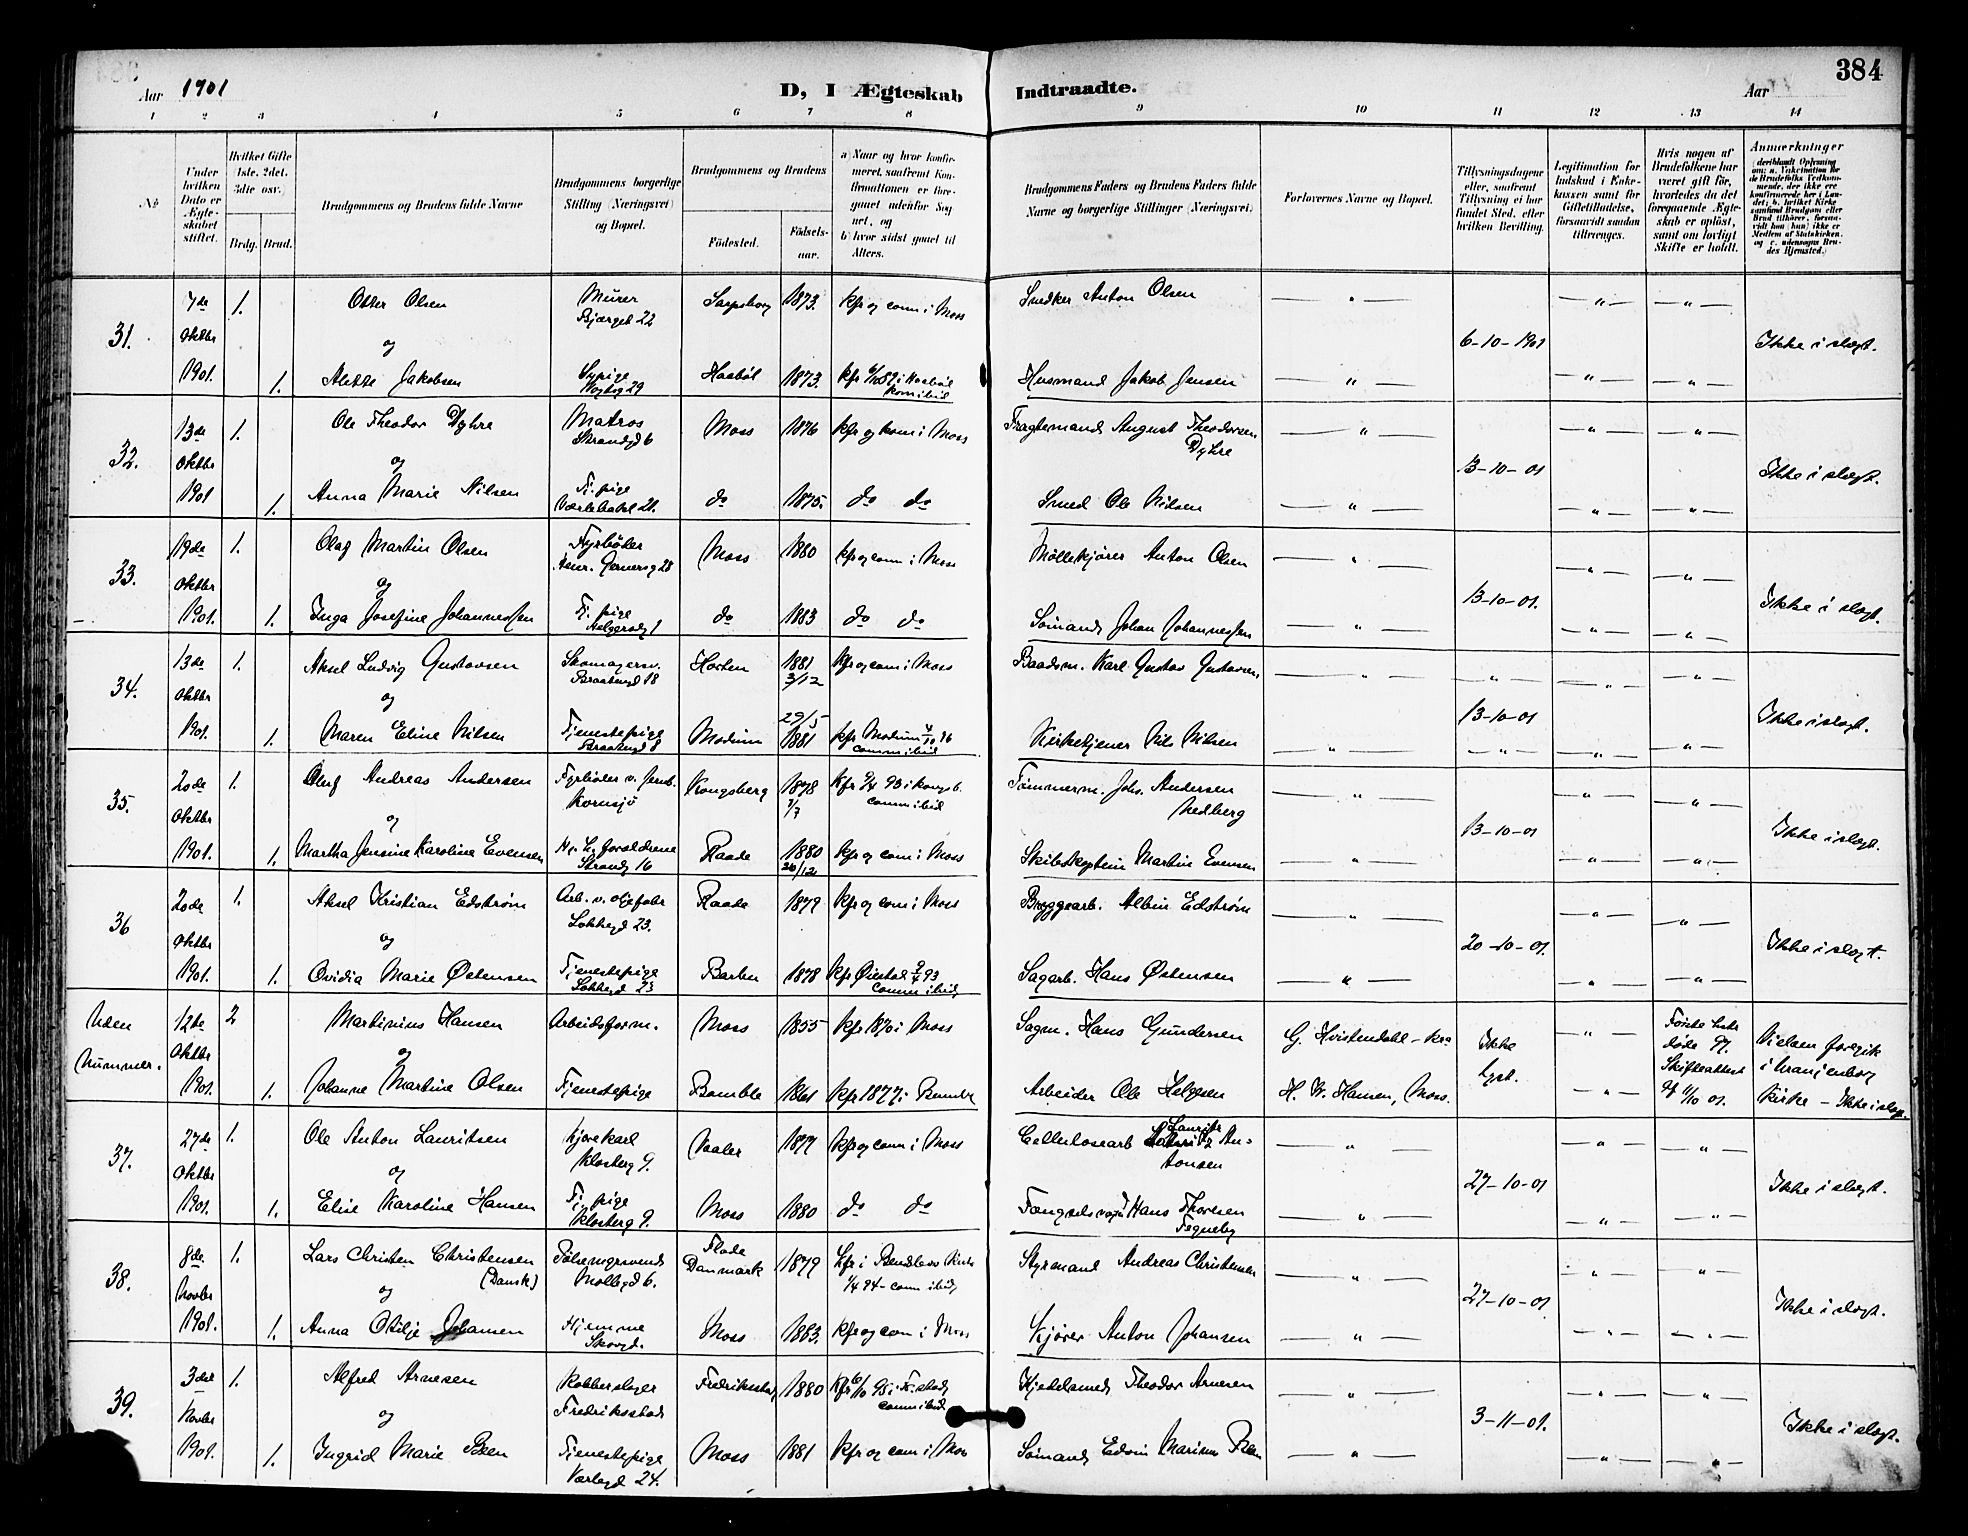 384
Aar 1901
D, I Ægteskab Indtraadte.
Aar
1 2 3 4 5 6 7 8 9 10 11 12 13 14
No
Under hvilken Dato er Ægteskabet stiftet.
Hvilket Gifte (1ste, 2det, 3die osv.)
Brdg. Brud.
Brudgommens og Brudens fulde Navne
Brudgommens borgerlige Stilling (Næringsvei) og Bopæl.
Brudgommens og Brudens
Fødested. Fødselsaar.
a) Naar og hvor konfirmeret, saafremt Konfirmationen er foregaaet udenfor Sognet, og
b) hvor sidst gaaet til Alters.
Brudgommens Faders og Brudens Faders fulde Navne og borgerlige Stillinger (Næringsvei)
Forlovernes Navne og Bopæl.
Tillysningsdagene eller, saafremt Tillysning ei har fundet Sted, efter hvilken Bevilling.
Legitimation for Indskud i Enkekassen samt for Giftetilladelse, forsaavidt saadan tiltrænges.
Hvis nogen af Brudefolkene har været gift før, hvorledes da det foregaaende Ægteskab er opløst, samt om lovligt Skifte er holdt.
Anmærkninger
(deriblandt Oplysning om: a. Vakcination for de Brudefolks Vedkommende, der ikke ere konfirmerede her i Landet; b. hvilket Kirkesamfund Brudgom eller Brud tilhører, forsaavidt han (hun) ikke er Medlem af Statskirken, og c. udensogns Brudes Hjemsted.)
31. 7de Oktbr 1901. 1. Otter Olsen Murer Bjærget 22 Sarpsborg 1873. kfr og comm i Moss Snedker Anton Olsen
og 6-10-1901 Ikke i slægt.
1. Alette Jakobsen Sypige Vogtsg 29 Haabøl 1873. Husmand Jakob Jensen
32. 13de Oktbr 1901 1. Ole Theodor Dyhre Matros Strandgd 6 Moss 1876 kfr og kom i Moss Fragtemand August Theodorsen Dyhre
og 13-10-01 Ikke i slægt.
1. Anna Marie Nilsen Tj. pige do 1875. do do Smed Ole Nilsen
33. 19de Oktbr 1901. 1. Olaf Martin Olsen Fyrbøder Moss 1880 kfr og com i Moss Møllekjører Anton Olsen
og 13-10-01. Ikke i slægt.
1. Inga Josefine Johannessen Tj. pige do 1883 do do Sømand Johan Johannessen
34. 13de Oktbr 1901. 1. Aksel Ludvig Gustavsen Skomagersv. Horten 1881 3/12 kfr og com i Moss Baadsm. Karl Gustav Gustavsen
og 13-10-01 Ikke i slægt.
1. Maren Eline Nilsen Tjenestepige Modum 29/5 1881 kfr Modum comm ibid Kirketjener Nils Nilsen
35. 20de Oktbr 1901. 1. Oluf Andreas Andersen Fyrbøder v. Jernb. Kornsjø Kongsberg 1878 Kfr 93 i Kongsb. comm ibid Tømmerm. Johs. Andersen Nedberg
og 13-10-01 Ikke i slægt.
1. Martha Jensine Karoline Evensen Strandg 16 Raade 1880 kfr og com i Moss Skibskaptein Martin Evensen
36 20de Oktbr 1901. 1. Aksel Kristian Edstrøm Arb. v. oljefabr 23. Raade 1879 kfr og com i Moss Bryggearb. Albin Edstrøm
og 20-10-01. Ikke i slægt.
1. Ovidia Marie Østensen Tjenestepige 23 Barbu 1878 kfr Øiestad 93 comm ibid Sagarb. Hans Østensen
Uden Nummer. 12de Oktbr 1901. 2 Martinius Hansen Arbeidsform. Moss 1855 kfr 1870 i Moss Sagm. Hans Gundersen G. Hvistendahl – Kra Ikke lyst. Første hustr. døde 97. Skifteattest af 11/10 01. Vielsen foregik i Uranienborg kirke – Ikke i slægt.
og
1. Johanne Martine Olsen Tjenestepige Bamble 1861 kfr 1877 i Bamble Arbeider Ole Helgesen H. W. Hansen, Moss.
37. 27de Oktbr 1901. 1. Ole Anton Lauritsen kjørekarl Klosterg 9. Vaaler 1877 kfr og com i Moss Cellulosearb Laurits Antonsen
og 27-10-01 Ikke i slægt.
1. Elise Karoline Hansen Tj. pige Klosterg 9. Moss 1880 do do Fængselsvagt Hans Thoresen
38. 8de Novbr 1901. 1. Lars Christen Christensen (Dansk) Møllegd 6. Flade Danmark 1879 Styrmand Andreas Christensen
og 27-10-01 Ikke i slægt.
1. Anna Otilje Johansen Hjemme Skovgd. Moss 1883. kfr og com i Moss Kjører Anton Johansen
39. 3die Novbr 1901. 1. Alfred Arnesen Kobberslager Fredriksstad Fredriksstad 1880 comm ibid Kjedelsmed Theodor Arnesen
og 3-11-01. Ikke i slægt.
1. Ingrid Marie Tjenestepige Værlegd 24. Moss 1881 kfr og com i Moss Sømand Edvin